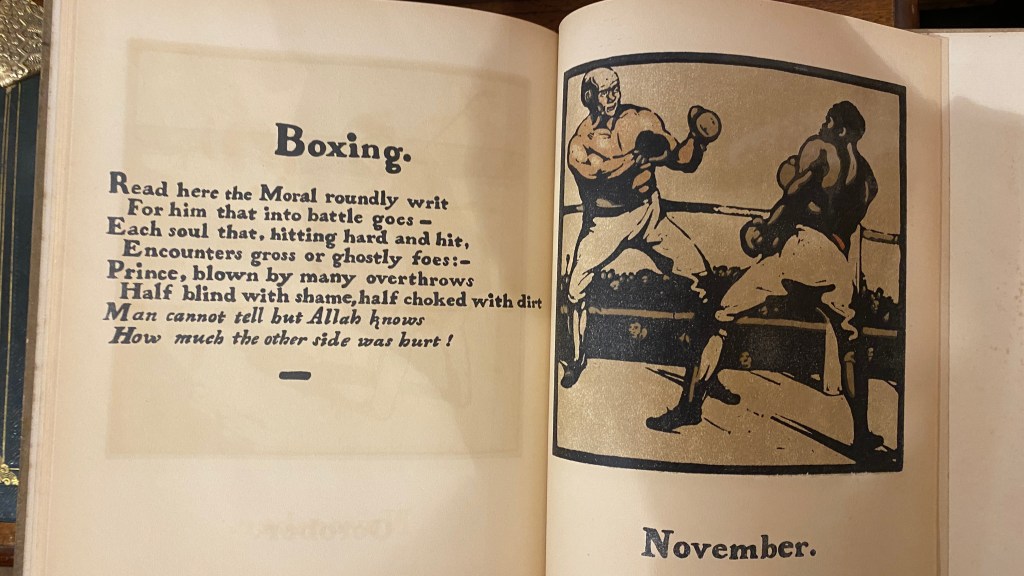 Boxing.
Read here the Moral roundly writ
For him that into battle goes –
Each soul that, hitting hard and hit,
Encounters gross or ghostly foes:–
Prince, blown by many overthrows
Half blind with shame, half choked with dirt
Man cannot tell but Allah knows
How much the other side was hurt!
November.